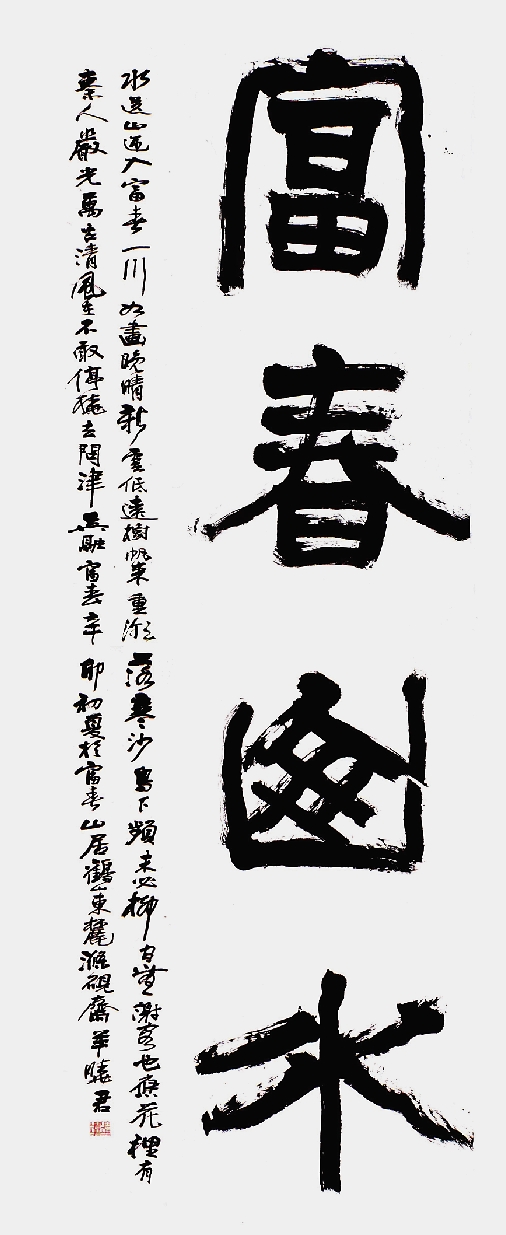 富春水
水送山迎入富春一川如畫晚晴新雲低遠樹帆来重潮落寒沙鳥下頻未必柳自無謝客也應花裡有
秦人嚴光萬古清風在不敢停橈去問津吴融富春辛卯初夏於富春山居鸛山東麓滌硯齋羊曉君